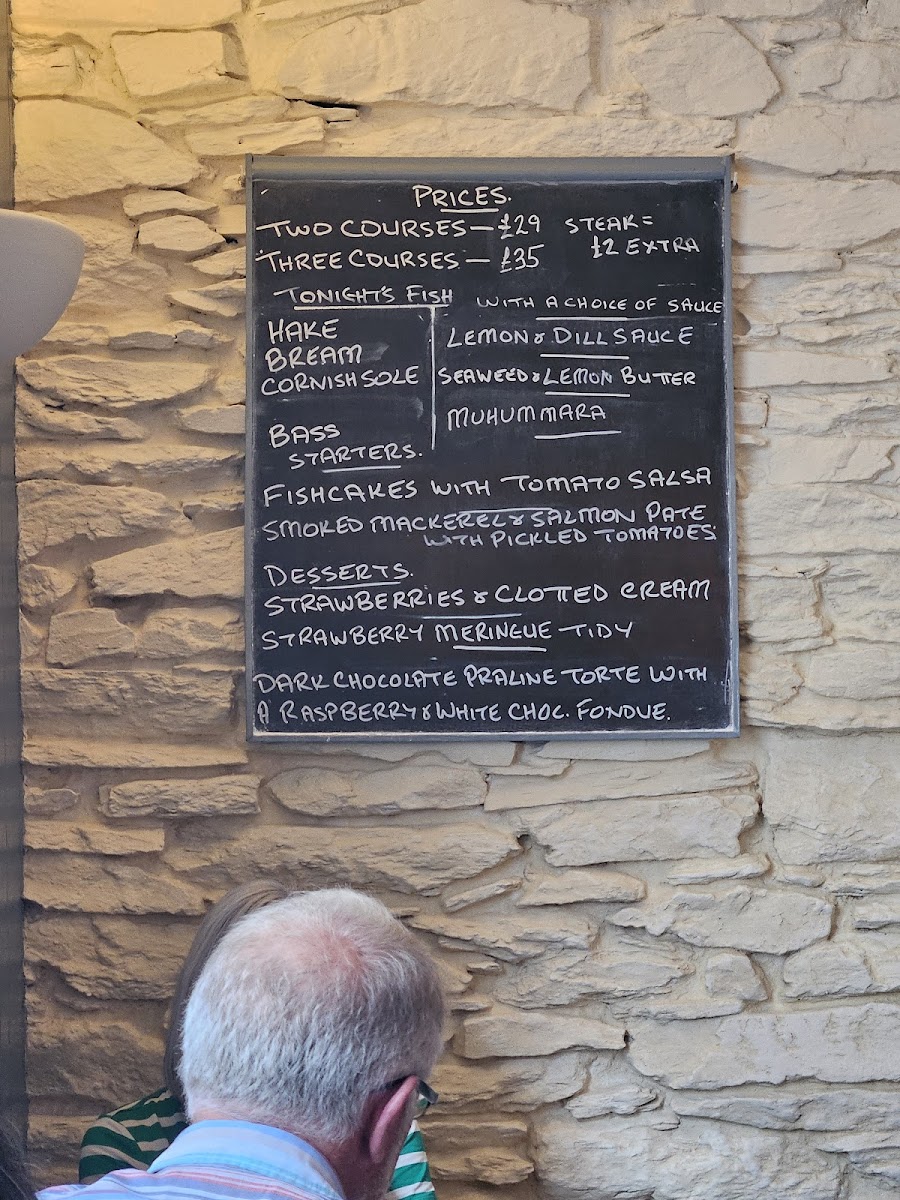 PRICES.
TWO COURSES — £29
STEAK =
£2 EXTRA
THREE COURSES — £35
TONIGHT'S FISH
WITH A CHOICE OF SAUCE
HAKE
BREAM
CORNISH SOLE
BASS
LEMON & DILL SAUCE
SEAWEED & LEMON BUTTER
MUHUMMARA
STARTERS.
FISHCAKES WITH TOMATO SALSA
SMOKED MACKEREL & SALMON PATE
WITH PICKLED TOMATOES
DESSERTS.
STRAWBERRIES & CLOTTED CREAM
STRAWBERRY MERINGUE TIDY
DARK CHOCOLATE PRALINE TORTE WITH
A RASPBERRY & WHITE CHOC. FONDUE.